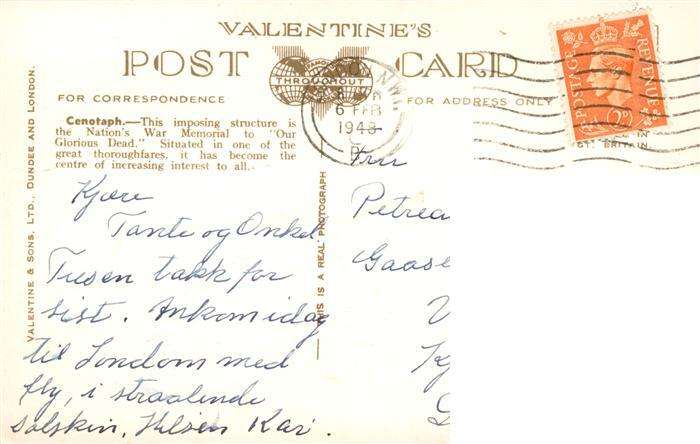 VALENTINE'S
POST CARD
FAMOUS
THROUGHOUT
FOR CORRESPONDENCE
FOR ADDRESS ONLY
N.W.1
6 FEB
1948
POSTAGE
REVENUE
2D
GT. BRITAIN
Cenotaph.—This imposing structure is
the Nation's War Memorial to "Our
Glorious Dead." Situated in one of the
great thoroughfares, it has become the
centre of increasing interest to all.
VALENTINE & SONS, LTD., DUNDEE AND LONDON.
THIS IS A REAL PHOTOGRAPH
Kjære
Tante og Onkel
Tusen takk for
sist. Ankom idag
til London med
fly, i straalende
solskin. Hilsen Kari.
Fru
Petrea
Gaase
V
Kj